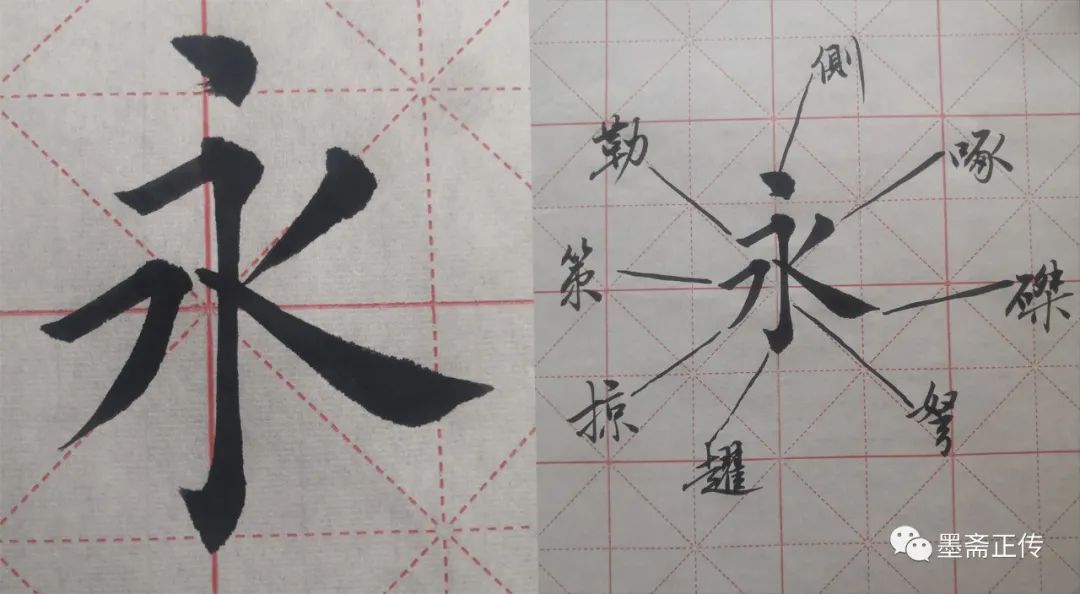 永
側
勒
啄
永
策
磔
掠
努
趯
墨斋正传